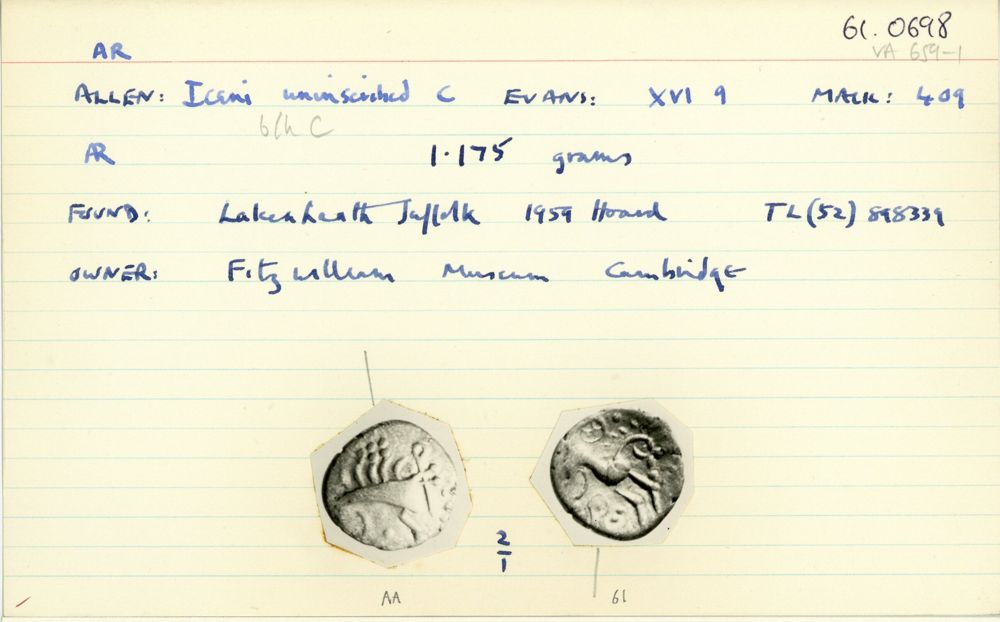 61.0698
VA 659-1
AR
ALLEN: Iceni uninscribed C EVANS: XVI 9 MACK: 409
b/h C
AR 1.175 grams
FOUND: Lakenheath Suffolk 1959 Hoard TL(52) 898339
OWNER: Fitzwilliam Museum Cambridge
2/1
AA 61